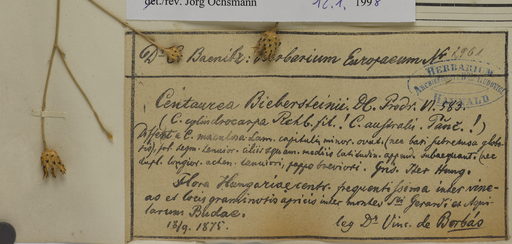 det./rev. Jörg Ochsmann 12.1. 1998
Dr. C. Baenitz: Herbarium Europaeum Nr. 2961
HERBARIUM
Centaurea Biebersteinii DC. Prodr. VI. 583.
(C. cylindrocarpa Rchb. fil.! C. australis. Panč.!)
Differt a C. maculosa Lam. capitulis minor. ovat. (nec bas. retusa globo
sis), fol. segm. tenuior. ciliis squam. mediis latitudin. append. subaequant. (nec
dupl. longior. achen. tenuiori, pappo breviori. Gris. Iter Hung.
Flora Hungariae centr. frequentissima inter vine-
as et locis graminosis apricis inter montes Sti Gerardi et Aqui-
larum Budae.
18/9. 1875. leg. Dr. Vinc. de Borbás